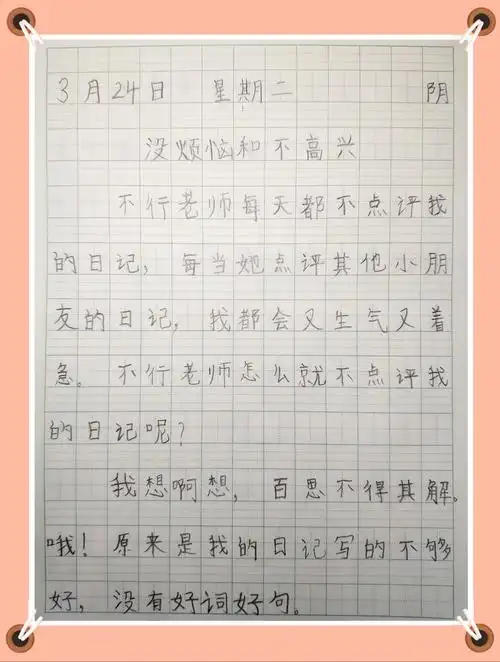 3月24日 星期二 阴
没烦恼和不高兴
不行老师每天都不点评我
的日记，每当她点评其他小朋
友的日记，我都会又生气又着
急。不行老师怎么就不点评我
的日记呢？
我想啊想，百思不得其解。
哦！原来是我的日记写的不够
好，没有好词好句。